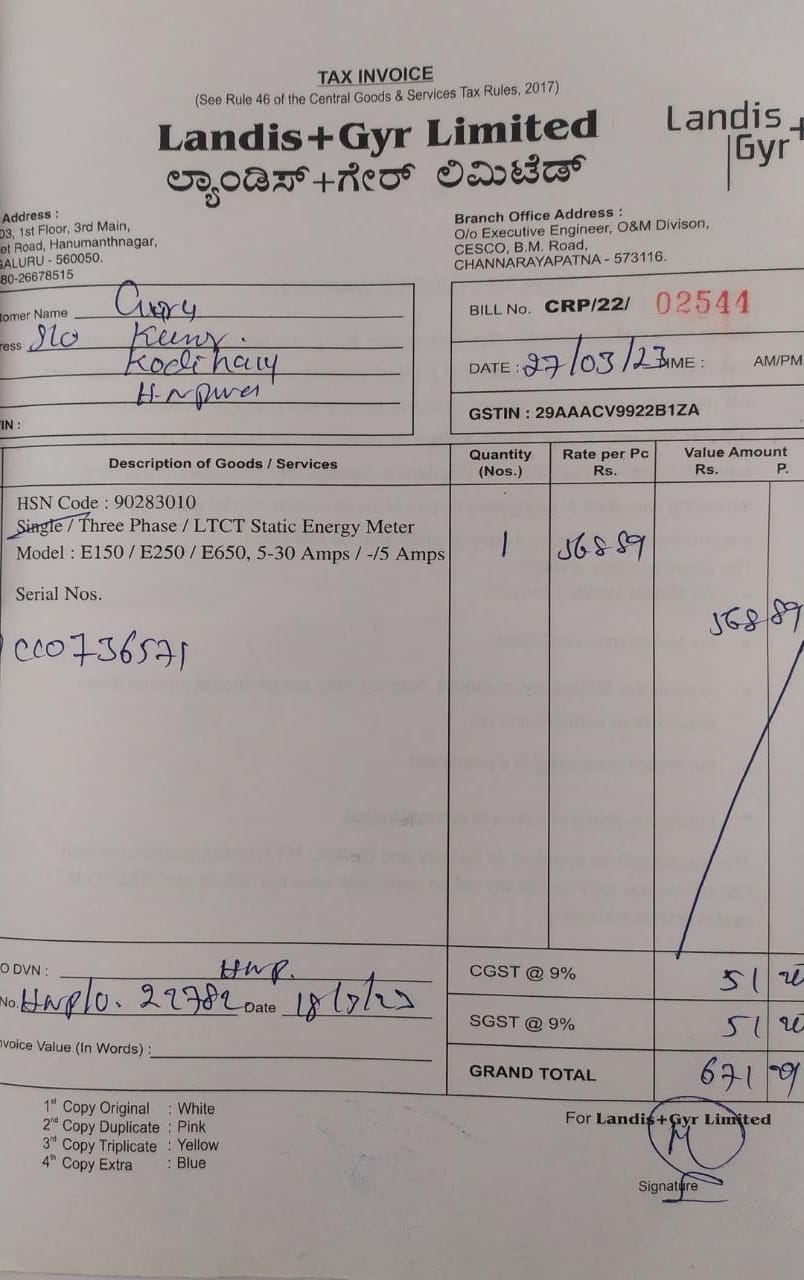 TAX INVOICE
(See Rule 46 of the Central Goods & Services Tax Rules, 2017)
Landis+Gyr Limited
ಲ್ಯಾಂಡಿಸ್+ಗೇರ್ ಲಿಮಿಟೆಡ್
Landis+
Gyr
Address :
03, 1st Floor, 3rd Main,
et Road, Hanumanthnagar,
GALURU - 560050.
80-26678515
Branch Office Address :
O/o Executive Engineer, O&M Divison,
CESCO, B.M. Road,
CHANNARAYAPATNA - 573116.
tomer Name
ress S/o
IN :
BILL No. CRP/22/ 02544
DATE : 27/03/23 TIME : AM/PM
GSTIN : 29AAACV9922B1ZA
Description of Goods / Services Quantity (Nos.) Rate per Pc Rs. Value Amount Rs. P.
HSN Code : 90283010
Single / Three Phase / LTCT Static Energy Meter
Model : E150 / E250 / E650, 5-30 Amps / -/5 Amps 1 568 89
Serial Nos.
568 89
CC0736571
O DVN : HNP.
No. HNP/0. 22782 Date
CGST @ 9% 51
SGST @ 9% 51
nvoice Value (In Words) :
GRAND TOTAL 671
1st Copy Original : White
2nd Copy Duplicate : Pink
3rd Copy Triplicate : Yellow
4th Copy Extra : Blue
For Landis+Gyr Limited
Signature